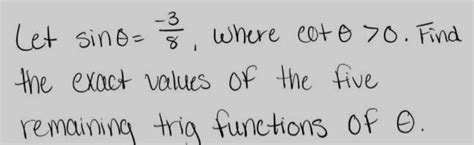 Let sinθ = -3/8, where cot θ > 0. Find
the exact values of the five
remaining trig functions of θ.